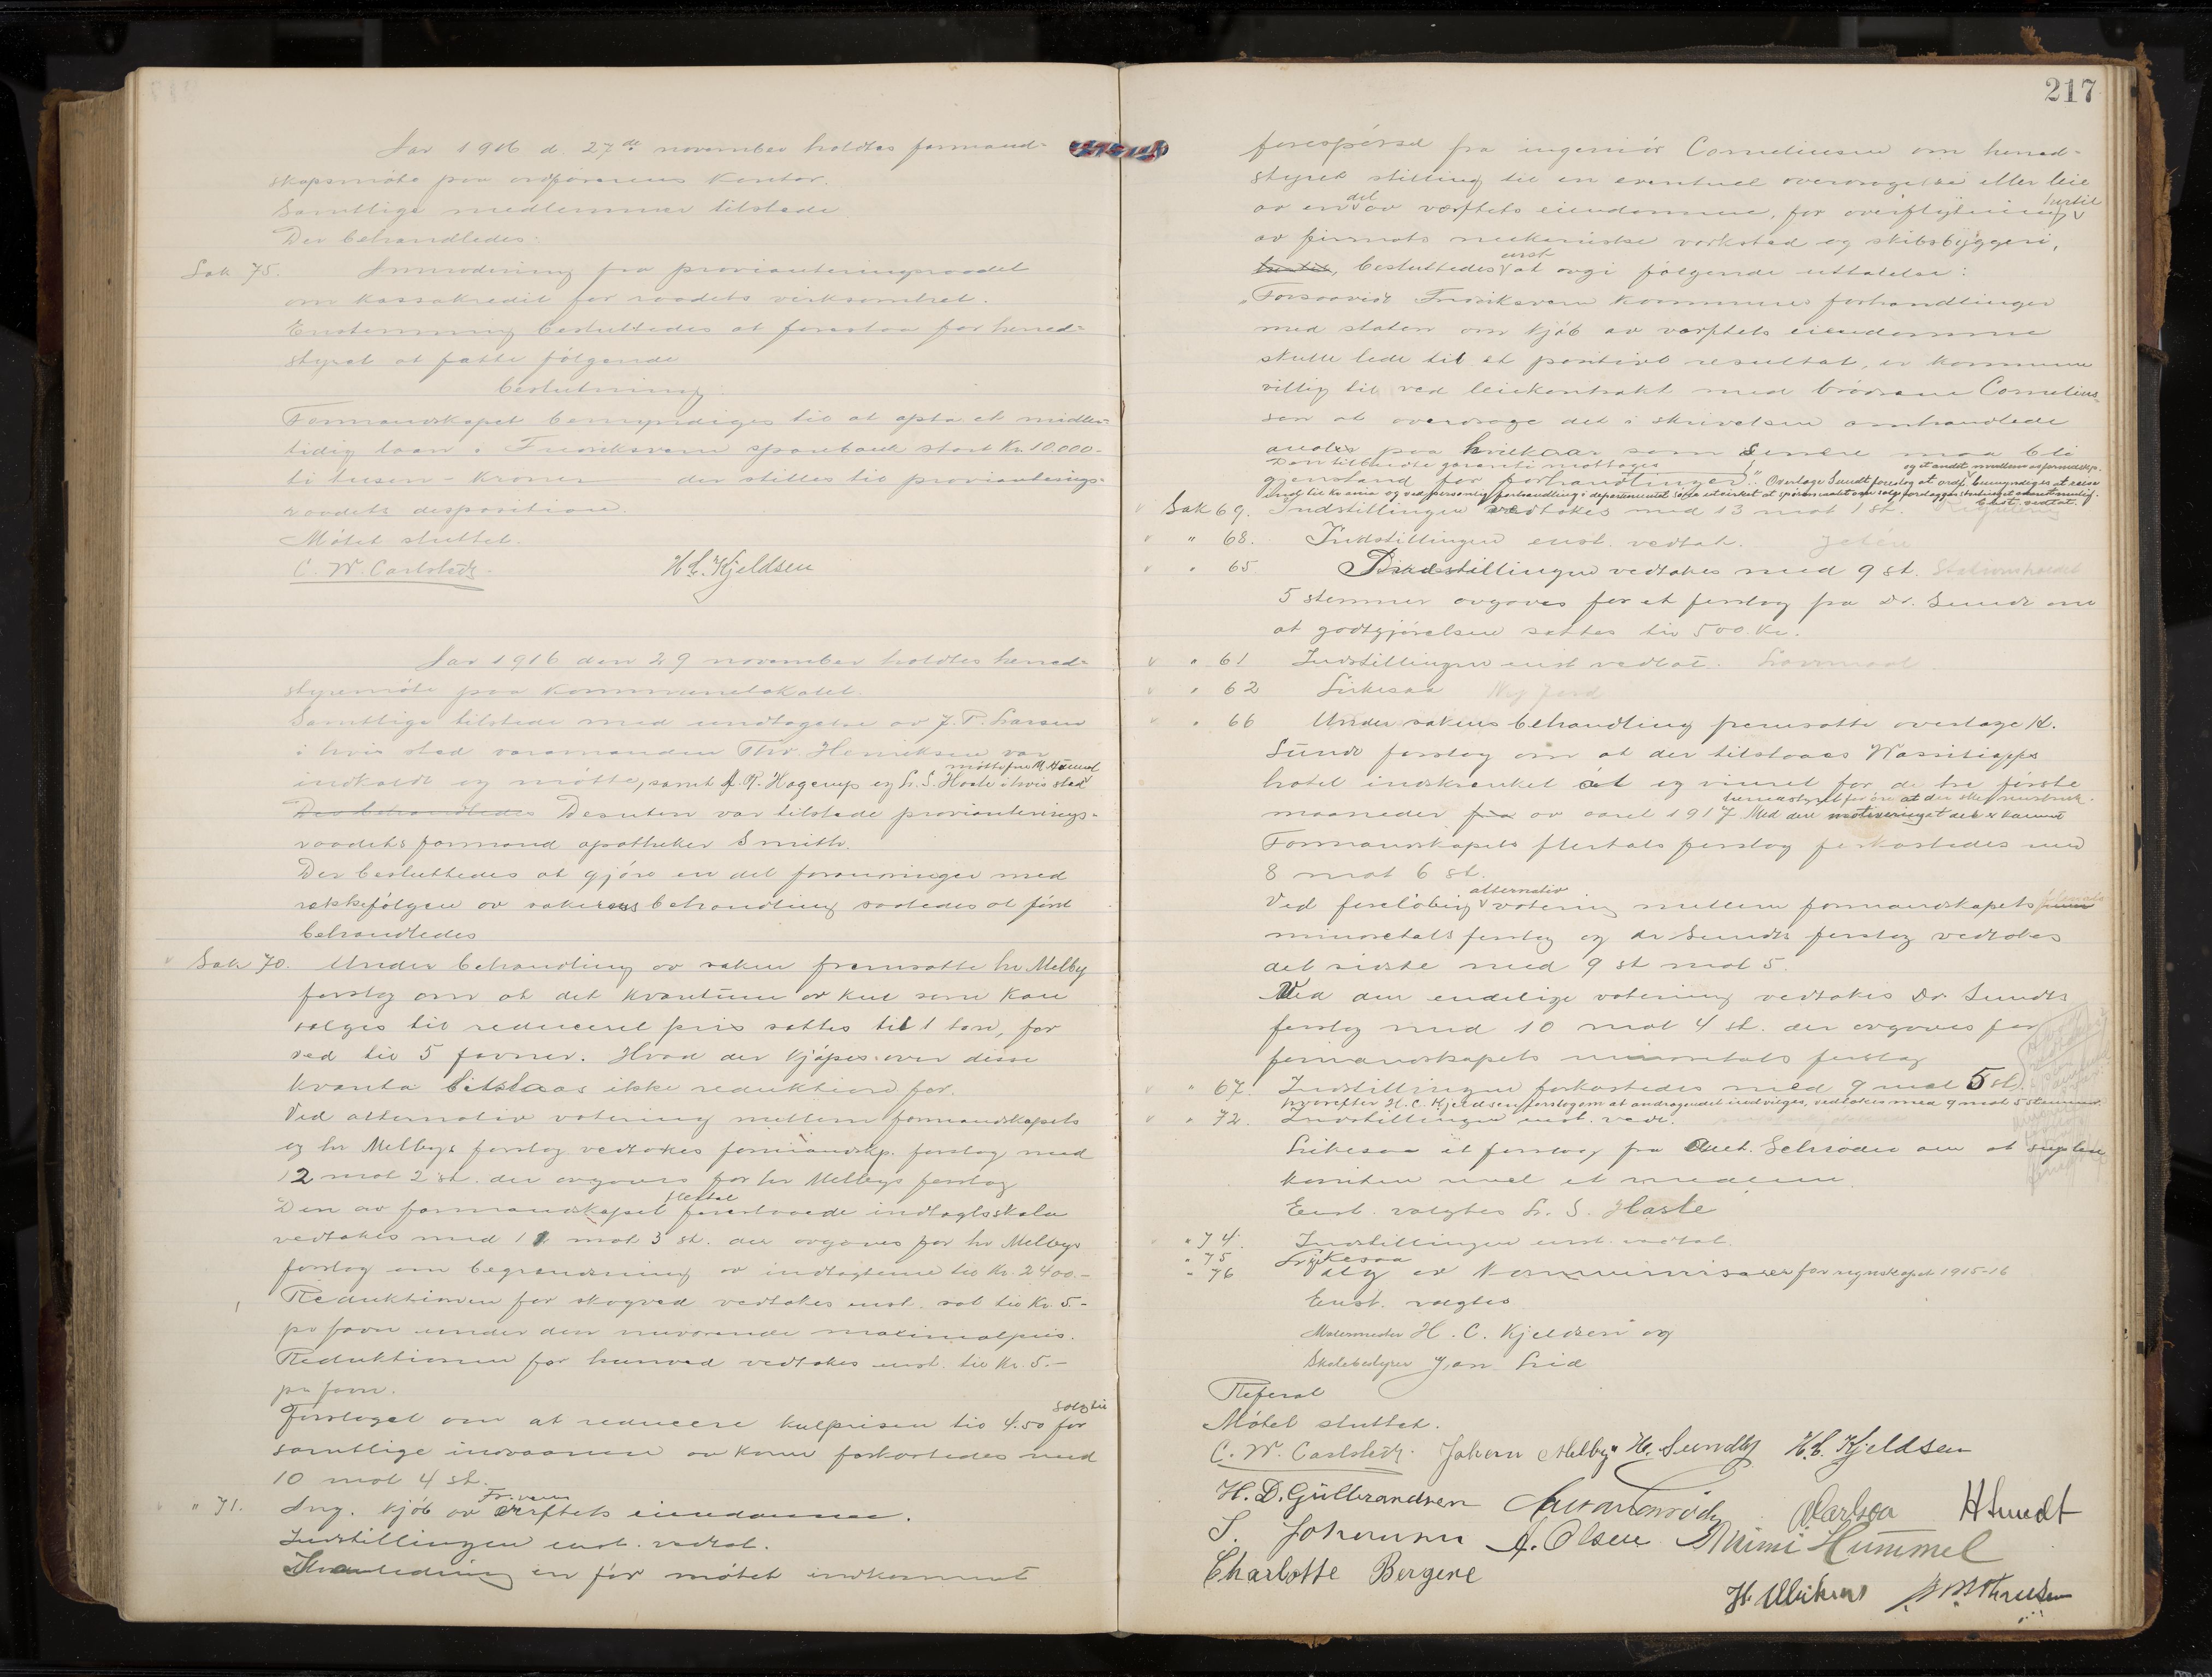 Aar 1916 d. 27de november holdtes formand-
skapsmøte paa ordførerens kontor.
Samtlige medlemmer tilstede
Der behandledes:
Sak 75. Innredning fra provianteringsraadet
om kassakredit for raadets virksomhet.
Enstemmig besluttedes at foreslaa for hered-
styret at fatte følgende
beslutning:
Formandskapet bemyndiges til at opta et midler-
tidig laan i Fredriksværn sparebank stort Kr. 10.000.-
ti tusen - Kroner der stilles til provianterings-
raadets disposition.
Møtet sluttet.
C. W. Carlstedt. H. C. Kjeldsen
Aar 1916 den 29 november holdtes hered-
styremøte paa kommunelokalet.
Samtlige tilstede med undtagelse av J. P. Larsen
i hvis sted varamanden Thv. Henriksen var
møtte fru M. Hummel
indkaldt og møtte, samt A. K. Hagerup og L. S. Haste i hvis sted
Der behandledes Desuten var tilstede provianterings-
raadets formand apotheker Smith.
Der besluttedes at gjøre en del forandringer med
rækkefølgen av sakernes behandling saaledes at først
behandledes
Sak 70. Under behandling av saken fremsatte hr Melby
forslag om at det kvantum av kul som kan
sælges til reduceret pris sættes til 1 tonn, for
ved til 5 favner. Hvad der kjøpes over disse
kvanta tilstaaes ikke reduktion for.
Ved alternativ votering mellem formandskapets
og hr Melbys forslag vedtokes formandskp. forslag med
12 mot 2 st. der avgaves for hr Melbys forslag
flertal
Den av formandskapet foreslaaede indtægtsskala
vedtokes med 11 mot 3 st. der avgaves for hr Melbys
forslag om begrænsning av indtægterne til Kr. 2400.-
Reduktionen for skogved vedtokes enst. sat til Kr. 5.-
pr favn under den nuværende maximalpris.
Reduktionen for hunved vedtokes enst. til Kr. 5.-
pr favn.
solgt til
Forslaget om at reducere kulprisen til 4.50 for
samtlige indvaanere av komm. forkastedes med
10 mot 4 st.
Fr.værns
" 71. Ang. kjøb av værftets eiendomme.
Indstillingen enst. vedtat.
I anledning en før møtet indkommet
217
forespørsel fra ingeniør Corneliusen om hered-
styrets stilling til en eventuel overdragelse eller leie
del hertil
av en av værftets eiendomme, for overflytning
av firmats mekaniske verksted og skibsbyggeri,
enst
besluttedes at avgi følgende uttalelse:
"Forsaavidt Fredriksværn kommunes forhandlinger
med staten om kjøb av værftets eiendomme
skulle lede til et positivt resultat, er kommunen
villig til ved leiekontrakt med brødrene Cornelius-
sen at overdrage det i skrivelsen omhandlede
areal paa hvilkaar som senere maa bli
Den tilbudte garanti mottages og et andet medlem av formandskp.
gjenstand for forhandlinger." Overlæge Sundt foreslog at ordf. bemyndiges at reise
ind til Kr.ania og ved personlig forhandling i departementet søke utvirket at spørsmaalet om salg forelægges stortinget snarest mulig.
Enst. vedtat.
Sak 69. Indstillingen vedtokes med 13 mot 1 st. Regulering
" 68. Indstillingen enst. vedtat. Jeten
" 65 Indstillingen vedtokes med 9 st.
5 stemmer avgaves for et forslag fra Dr. Sundt om
at godtgjørelsen sættes til 500 Kr.
" 61 Indstillingen enst vedtat.
" 62 Likesaa Ny Jord
" 66 Under sakens behandling fremsatte overlæge H.
Sundt forslag om at der tilstaaes Wassilioffs
hotel indskrænket øl og vinret for de tre første
heredstyret før øre at der sker misbruk.
maaneder fra av aaret 1917 Med den motivering at det er kommet
Formandskapets flertals forslag forkastedes med
8 mot 6 st.
alternativ
Ved foreløbig votering mellem formandskapets
minoretets forslag og dr Sundts forslag vedtokes
det sidste med 9 st mot 5.
Ved den endelige votering vedtokes Dr. Sundts
forslag med 10 mot 4 st. der avgaves for
formandskapets minoretets forslag
" 67. Indstillingen forkastedes med 9 mot 5 st.
hvorefter H. C. Kjeldsens forslag om at andragendet indvilges, vedtokes med 9 mot 5 stemmer.
" 72. Indstillingen enst. vedt.
Likesaa et forslag fra Schrøder om at suplere
komiteen med et medlem.
Enst. valgtes L. S. Haste
" 74. Indstillingen enst. vedtat.
" 75 Likesaa
" 76 Valg av for regnskapet 1915-16
Enst. valgtes
Malermester H. C. Kjeldsen og
Skolebestyrer Jan Lid
Referat
Møtet sluttet.
C. W. Carlstedt. Johan Melby H. Sundby H. C. Kjeldsen
H. D. Gulbrandsen H Sundt
S. Johansen A. Olsen Mimi Hummel
Charlotte Bergene